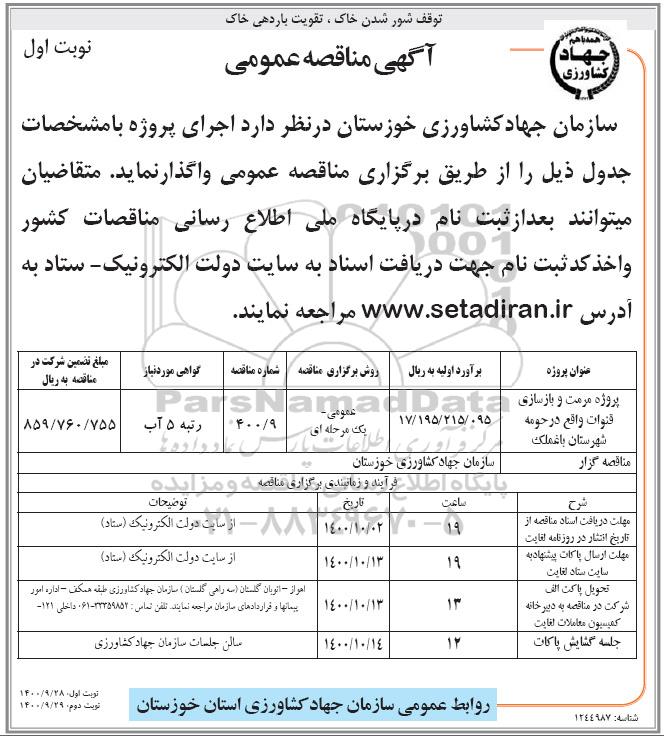 توقف شور شدن خاک ، تقویت باردهی خاک
همه با هم
جهاد
کشاورزی
آگهی مناقصه عمومی
نوبت اول
سازمان جهادکشاورزی خوزستان درنظر دارد اجرای پروژه بامشخصات
جدول ذیل را از طریق برگزاری مناقصه عمومی واگذارنماید. متقاضیان
میتوانند بعدازثبت نام درپایگاه ملی اطلاع رسانی مناقصات کشور
واخذکدثبت نام جهت دریافت اسناد به سایت دولت الکترونیک- ستاد به
آدرس www.setadiran.ir مراجعه نمایند.
عنوان پروژه برآورد اولیه به ریال روش برگزاری مناقصه شماره مناقصه گواهی موردنیاز مبلغ تضمین شرکت در
مناقصه به ریال
پروژه مرمت و بازسازی
قنوات واقع درحومه
شهرستان باغملک
۱۷/۱۹۵/۲۱۵/۰۹۵
عمومی-
یک مرحله ای
۴۰۰/۹
رتبه ۵ آب
۸۵۹/۷۶۰/۷۵۵
مناقصه گزار سازمان جهادکشاورزی خوزستان
فرآیند و زمانبندی برگزاری مناقصه
شرح ساعت تاریخ توضیحات
مهلت دریافت اسناد مناقصه از
تاریخ انتشار در روزنامه لغایت
۱۹ ۱۴۰۰/۱۰/۰۲ از سایت دولت الکترونیک (ستاد)
مهلت ارسال پاکات پیشنهادبه
سایت ستاد لغایت
۱۹ ۱۴۰۰/۱۰/۱۳ از سایت دولت الکترونیک (ستاد)
تحویل پاکت الف
شرکت در مناقصه به دبیرخانه
کمیسیون معاملات لغایت
۱۳ ۱۴۰۰/۱۰/۱۳
اهواز – اتوبان گلستان (سه راهی گلستان ) سازمان جهادکشاورزی طبقه همکف – اداره امور
پیمانها و قراردادهای سازمان مراجعه نمایند. تلفن تماس : ۳۳۳۵۹۸۵۲-۰۶۱ داخلی ۱۲۱-
جلسه گشایش پاکات ۱۲ ۱۴۰۰/۱۰/۱۴ سالن جلسات سازمان جهادکشاورزی
ParsNamadData
مرکز فرآوری اطلاعات پارس نماد داده ها
پایگاه اطلاع رسانی مناقصه و مزایده
۰۲۱-۸۸۳۴۹۶۷۰-۵
روابط عمومی سازمان جهادکشاورزی استان خوزستان
نوبت اول: ۱۴۰۰/۹/۲۸
نوبت دوم: ۱۴۰۰/۹/۲۹
شناسه: ۱۲۴۴۹۸۷